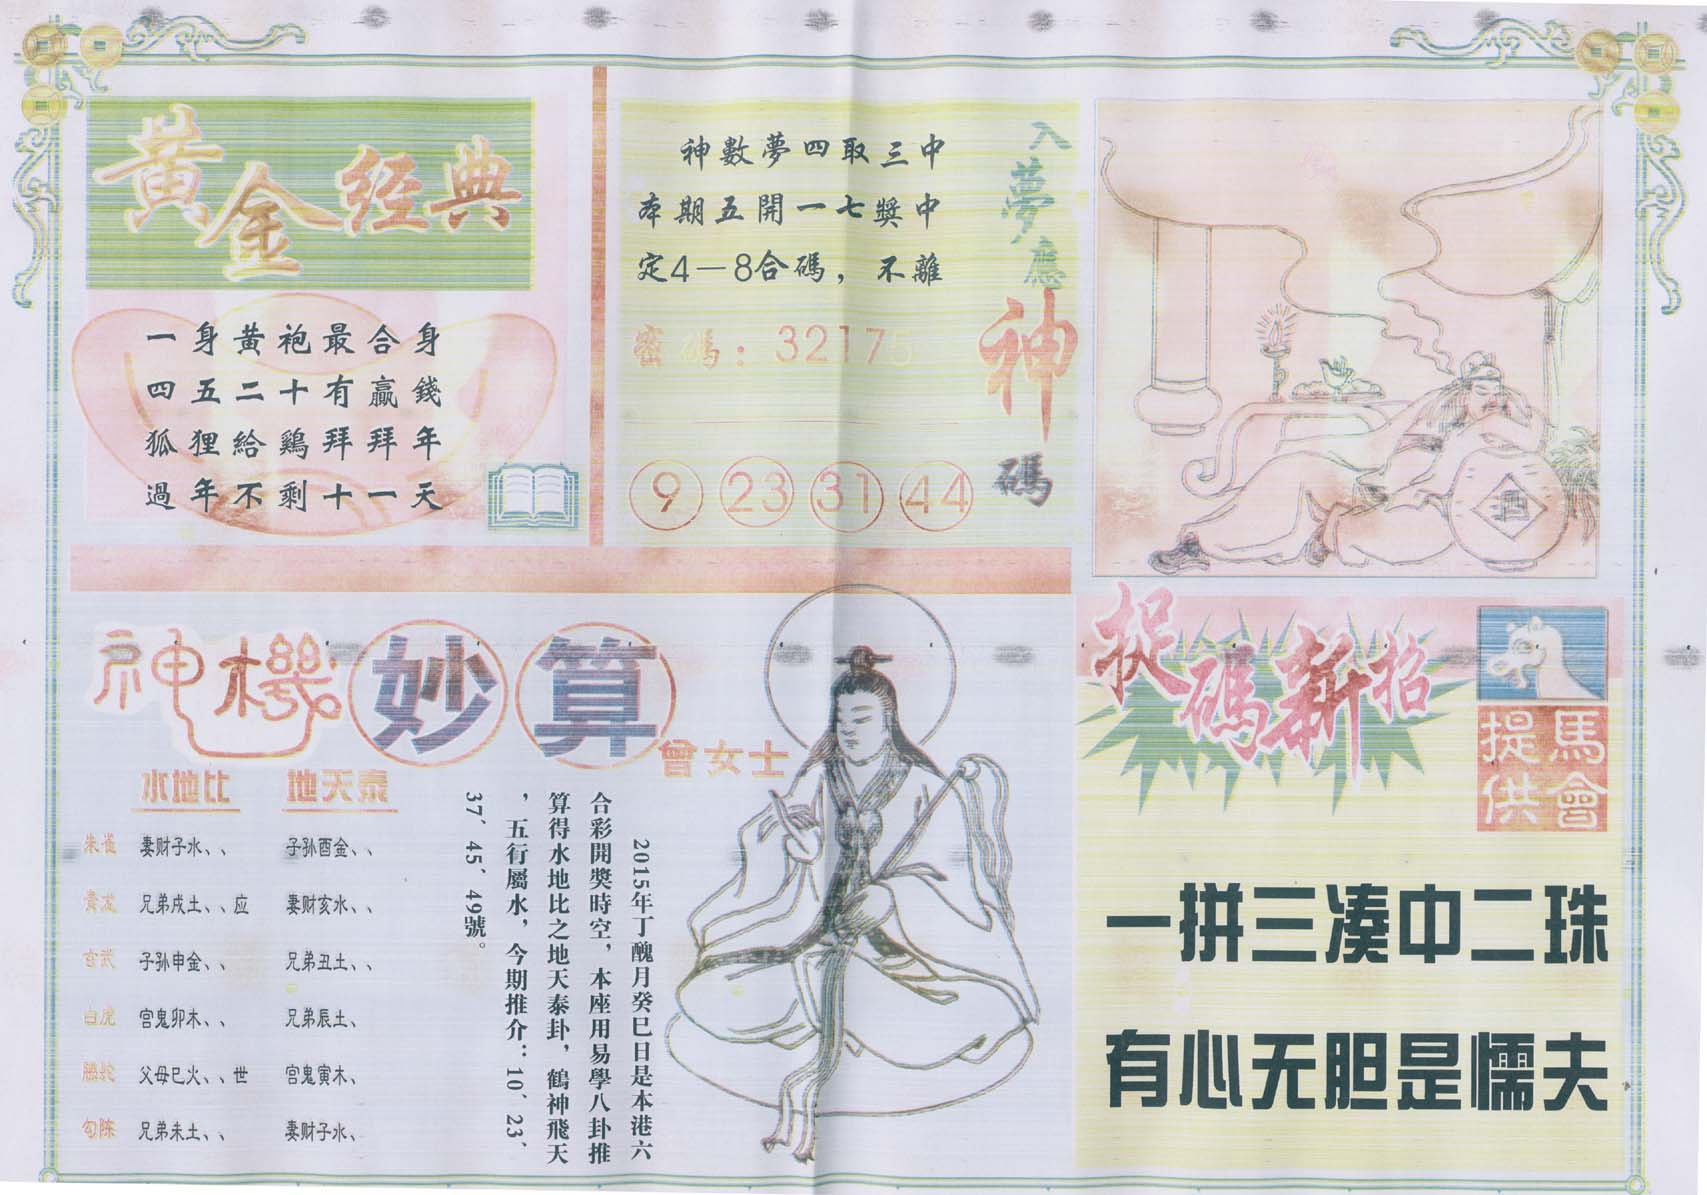 黃金经典
一身黄袍最合身
四五二十有贏錢
狐狸給鷄拜拜年
過年不剩十一天
入夢應神碼
神數夢四取三中
本期五開一七獎中
定4－8合碼，不離
密碼：32175
9 23 31 44
酒
神機妙算
曾女士
水地比 地天泰
朱雀 妻财子水、、 子孙酉金、、
青龙 兄弟戌土、、应 妻财亥水、、
玄武 子孙申金、、 兄弟丑土、、
白虎 宫鬼卯木、、 兄弟辰土、
螣蛇 父母巳火、、世 宫鬼寅木、
勾陈 兄弟未土、、 妻财子水、
2015年丁醜月癸巳日是本港六
合彩開獎時空，本座用易學八卦推
算得水地比之地天泰卦，鶴神飛天
，五行屬水，今期推介：10、23、
37、45、49號。
捉碼新招
馬會提供
一拼三凑中二珠
有心无胆是懦夫